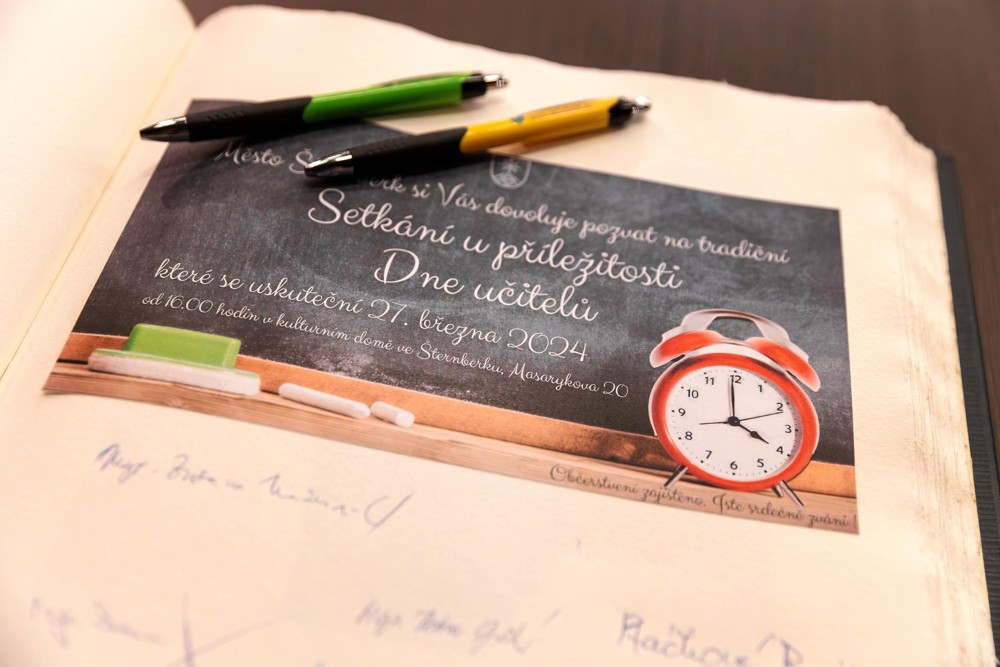 Město si Vás dovoluje pozvat na tradiční
Setkání u příležitosti
Dne učitelů
které se uskuteční 27. března 2024
od 16.00 hodin v kulturním domě ve Šternberku, Masarykova 20
11 12 1
10 2
9 3
8 4
7 6
Občerstvení zajištěno. Jste srdečně zváni!
Mgr.
Mgr.
Mgr.